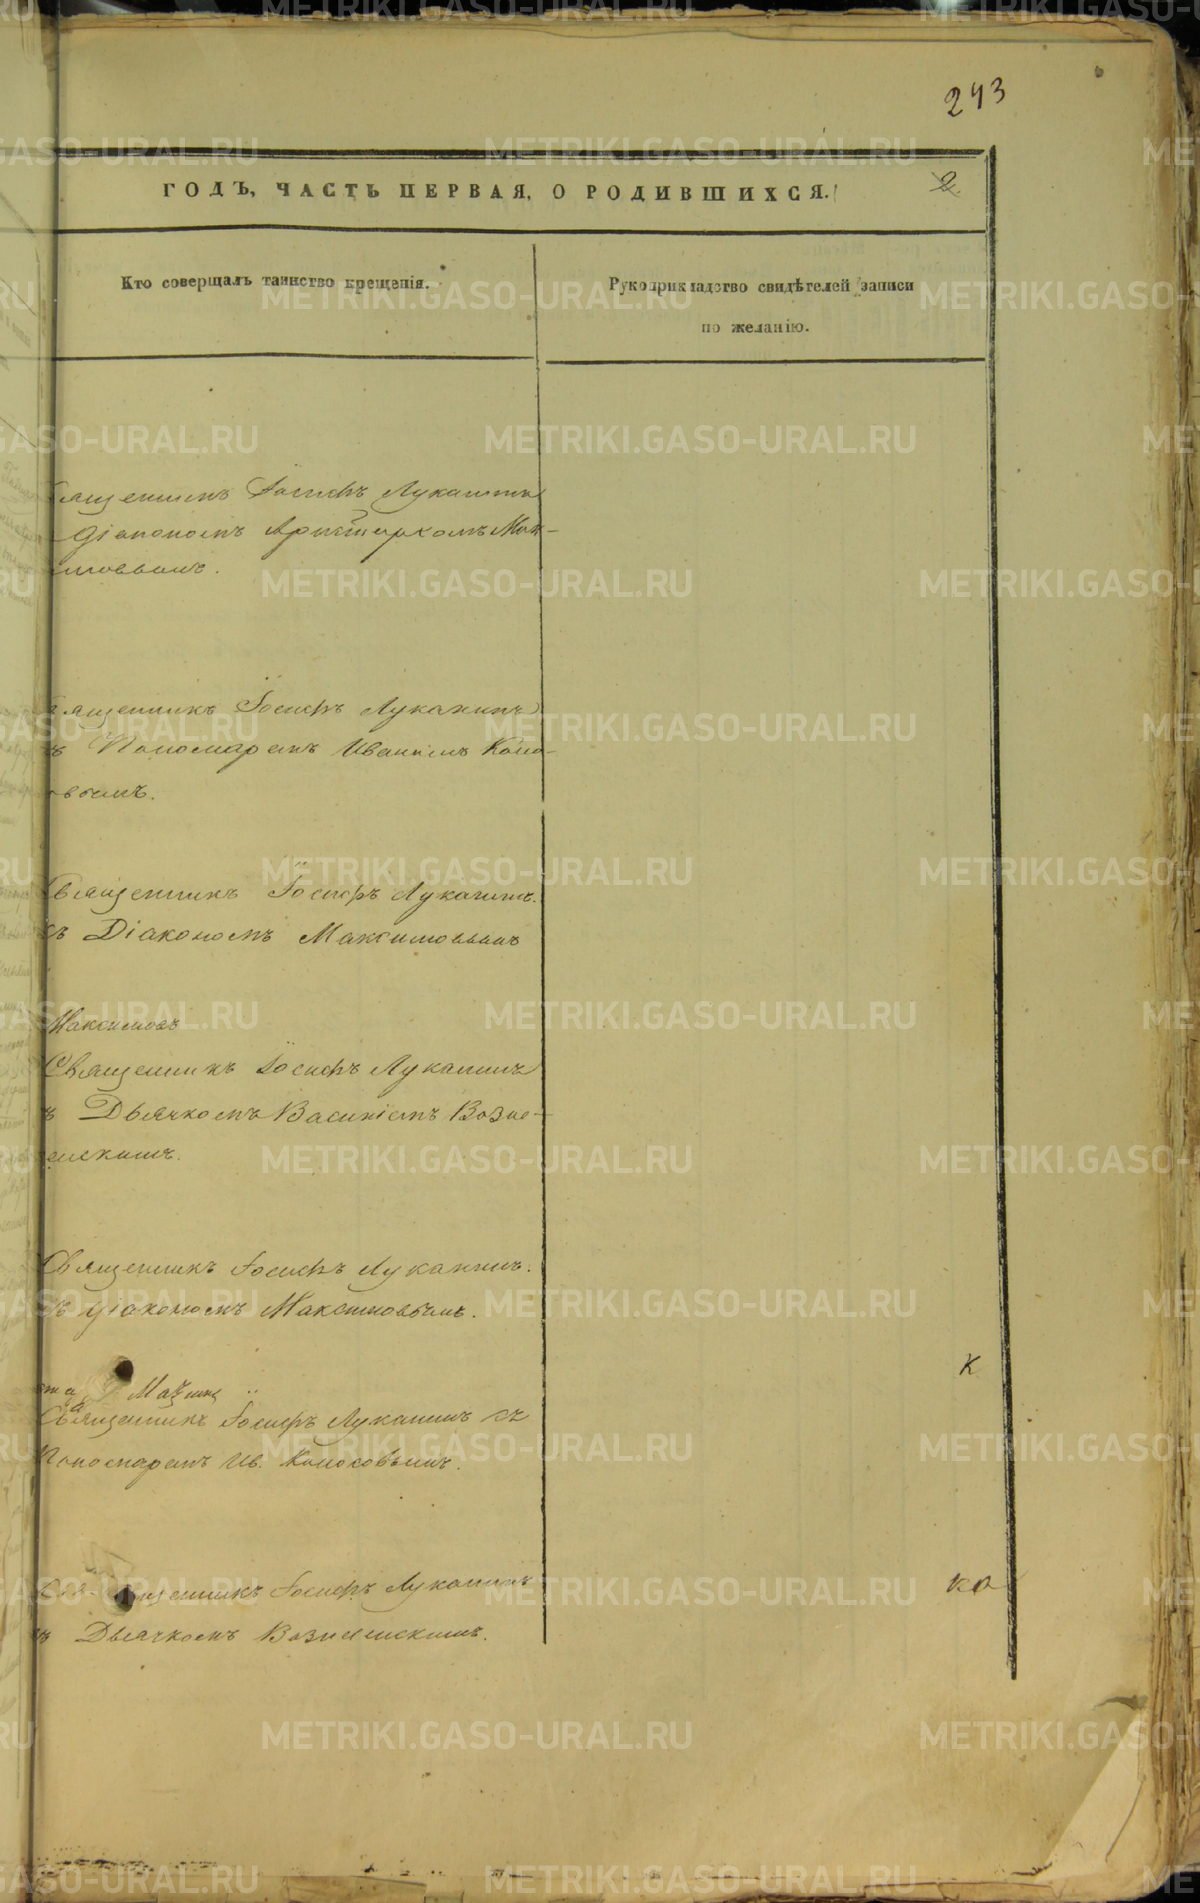 243
ГОДЪ, ЧАСТЬ ПЕРВАЯ, О РОДИВШИХСЯ.
2
Кто совершалъ таинство крещенія.
Рукоприкладство свидѣтелей записи
по желанію.
Священникъ Іосифъ Луканинъ
Діакономъ Аристархомъ Мак-
симовымъ.
Священникъ Іосифъ Луканинъ
съ Пономаремъ Иваномъ Коно-
вымъ.
Священникъ Іосифъ Луканинъ.
съ Діакономъ Максимовымъ
Максимовъ
Священникъ Іосифъ Луканинъ
ъ Дьячкомъ Василіемъ Возне-
сенскимъ.
Священникъ Іосифъ Луканинъ.
съ Діакономъ Максимовымъ.
К
Священникъ Іосифъ Луканинъ съ
Пономаремъ Ив.
Священникъ Іосифъ Луканинъ
ъ Дьячкомъ Вознесенскимъ.
METRIKI.GASO-URAL.RU